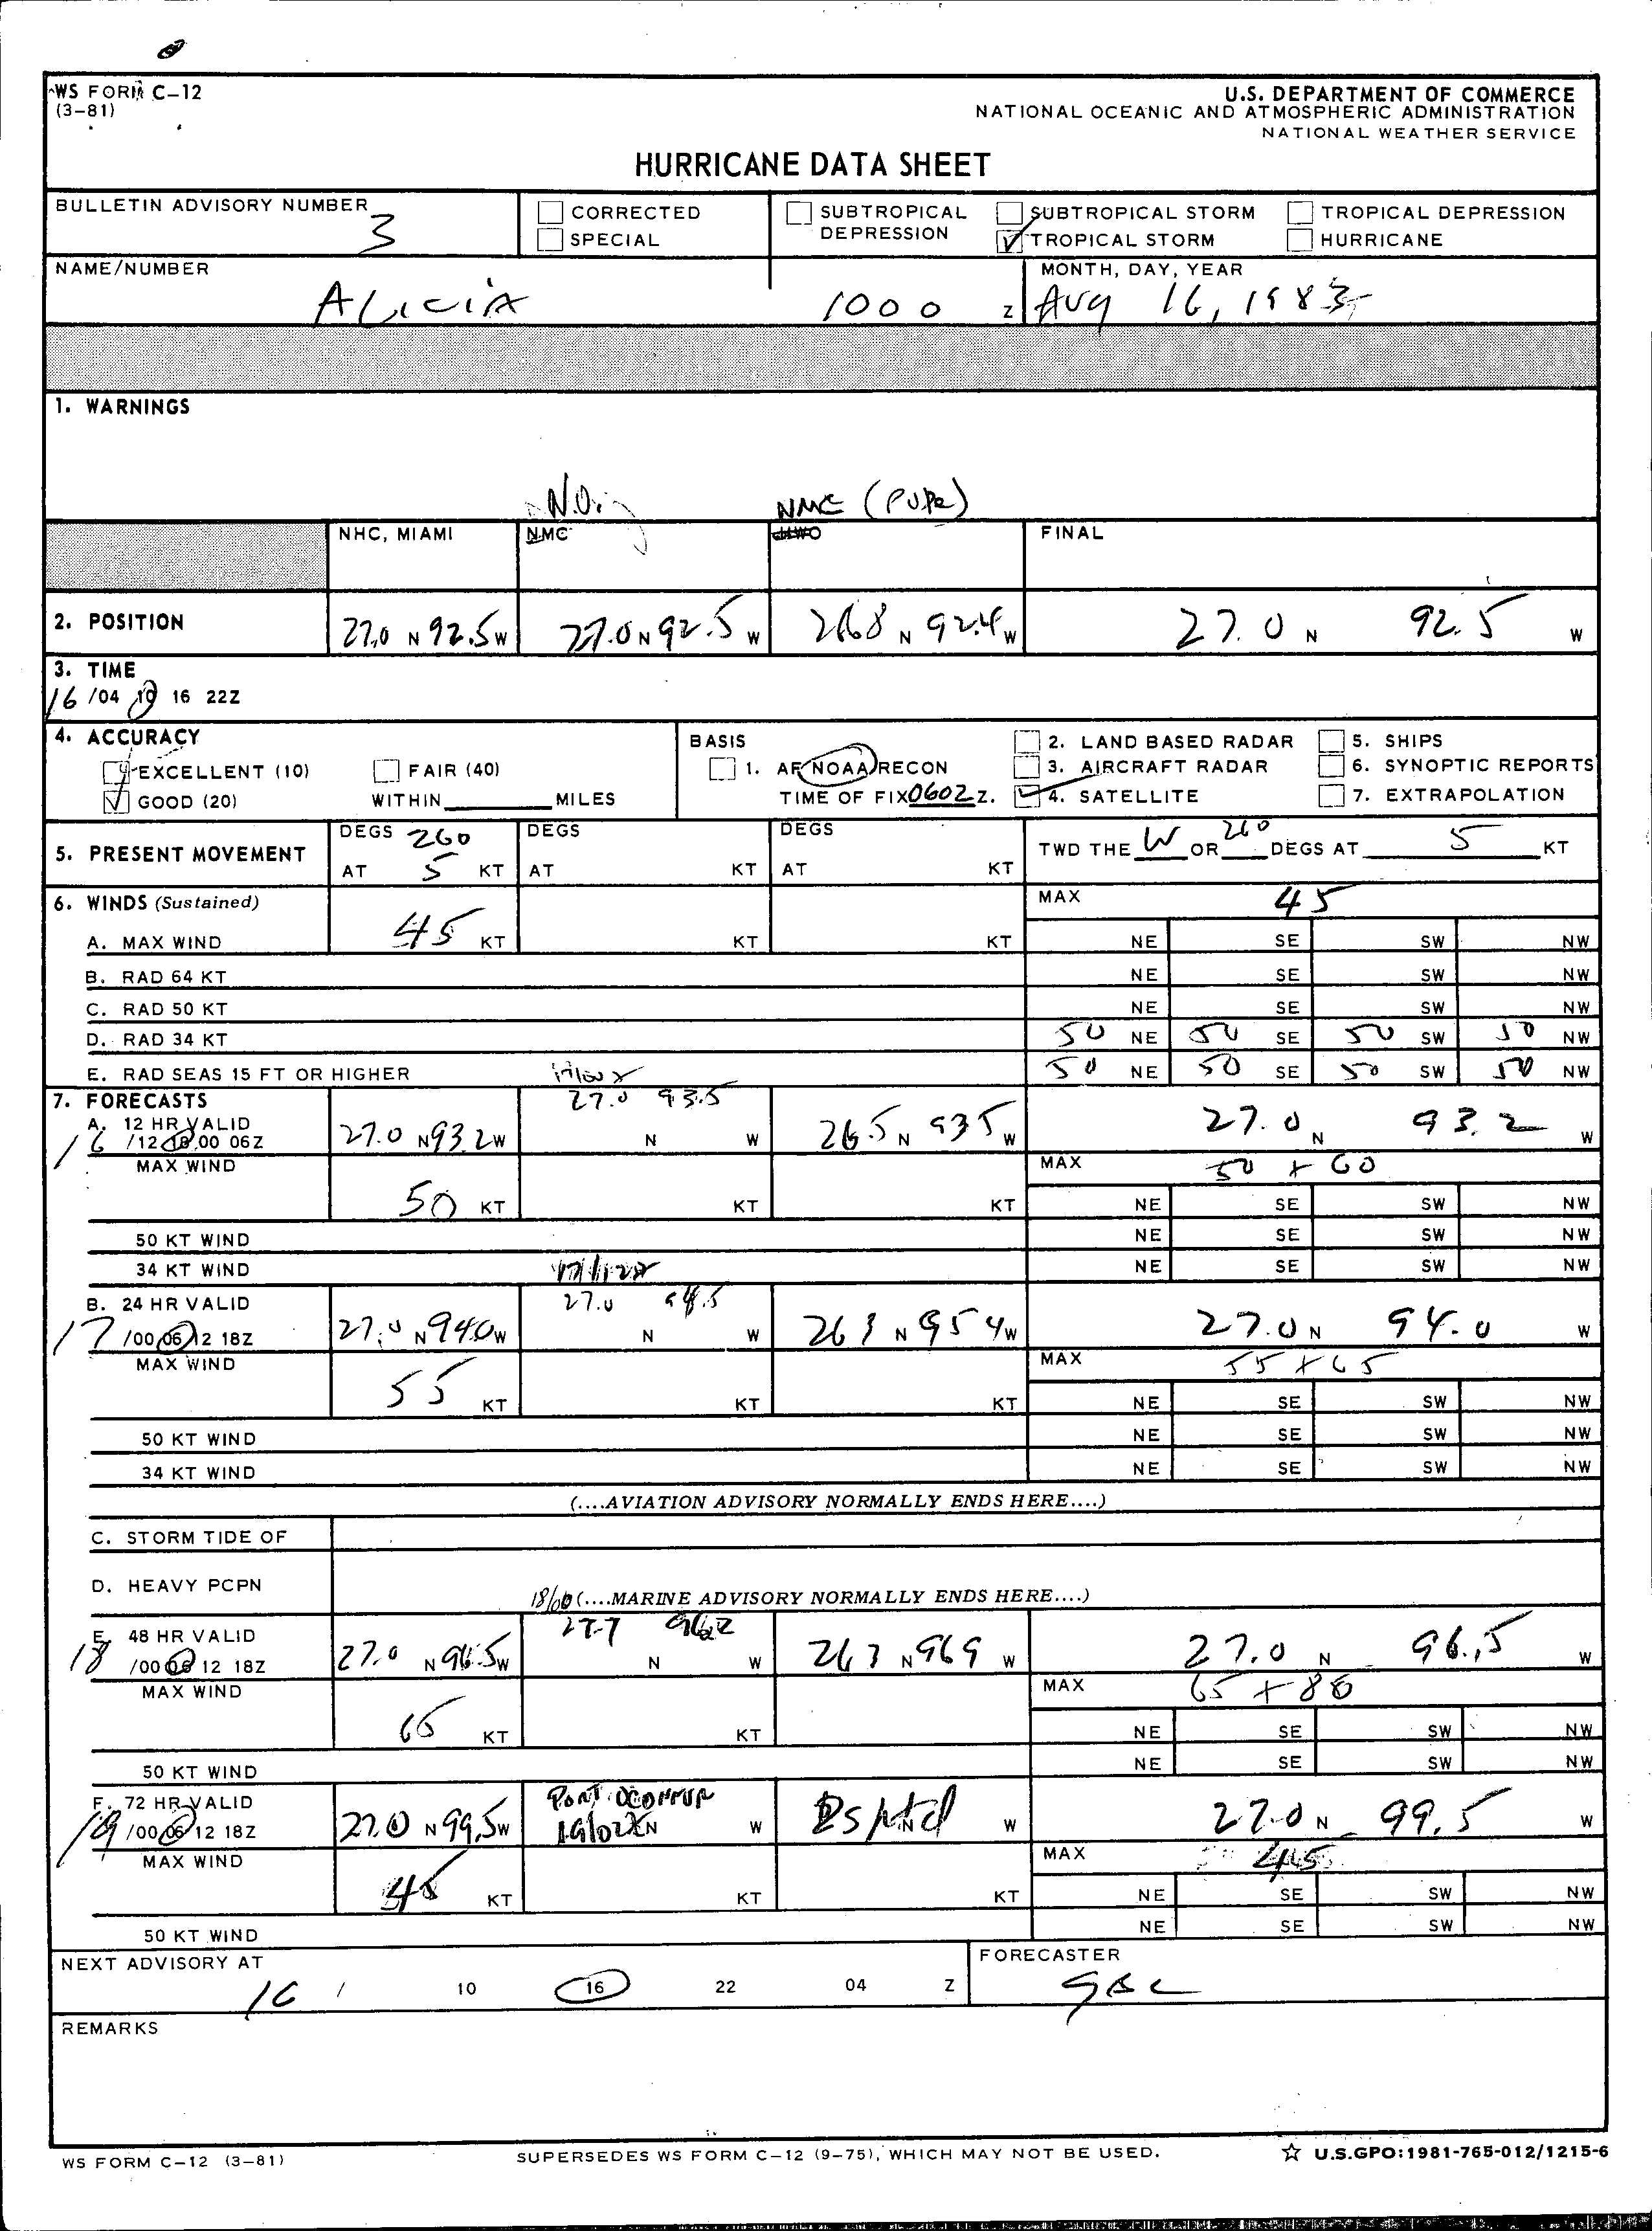 WS FORM C-12
(3-81)
U.S. DEPARTMENT OF COMMERCE
NATIONAL OCEANIC AND ATMOSPHERIC ADMINISTRATION
NATIONAL WEATHER SERVICE
HURRICANE DATA SHEET
BULLETIN ADVISORY NUMBER 3
CORRECTED
SPECIAL
SUBTROPICAL DEPRESSION
SUBTROPICAL STORM
TROPICAL STORM
TROPICAL DEPRESSION
HURRICANE
NAME/NUMBER
ALICIA
1000 Z
MONTH, DAY, YEAR
Aug 16, 1983
1. WARNINGS
N.O. NMC
NHC, MIAMI NMC FINAL
2. POSITION 27.0 N 92.5 W 27.0 N 92.5 W 26.8 N 92.4 W 27.0 N 92.5 W
3. TIME
16 /04 10 16 22Z
4. ACCURACY
EXCELLENT (10) FAIR (40)
GOOD (20) WITHIN MILES
BASIS
1. AF NOAA RECON
TIME OF FIX 0602 Z.
2. LAND BASED RADAR
3. AIRCRAFT RADAR
4. SATELLITE
5. SHIPS
6. SYNOPTIC REPORTS
7. EXTRAPOLATION
5. PRESENT MOVEMENT
DEGS 260 DEGS DEGS
AT 5 KT AT KT AT KT
TWD THE W OR 260 DEGS AT 5 KT
6. WINDS (Sustained) MAX 45
A. MAX WIND 45 KT KT KT NE SE SW NW
B. RAD 64 KT NE SE SW NW
C. RAD 50 KT NE SE SW NW
D. RAD 34 KT 50 NE 50 SE 50 SW 50 NW
E. RAD SEAS 15 FT OR HIGHER 50 NE 50 SE 50 SW 50 NW
7. FORECASTS 27.0 93.5
A. 12 HR VALID
16 /12 18 00 06Z 27.0 N 93.2 W N W 26.5 N 93.5 W 27.0 N 93.2 W
MAX WIND MAX 50 + 60
50 KT KT KT NE SE SW NW
50 KT WIND NE SE SW NW
34 KT WIND NE SE SW NW
B. 24 HR VALID 27.0 94.5
17 /00 06 12 18Z 27.0 N 94.0 W N W 26 3 N 95 4 W 27.0 N 94.0 W
MAX WIND MAX 55 + 65
55 KT KT KT NE SE SW NW
50 KT WIND NE SE SW NW
34 KT WIND NE SE SW NW
(....AVIATION ADVISORY NORMALLY ENDS HERE....)
C. STORM TIDE OF
D. HEAVY PCPN
18/00 (....MARINE ADVISORY NORMALLY ENDS HERE....)
E. 48 HR VALID 27.7 96.2
18 /00 06 12 18Z 27.0 N 96.5 W N W 26 3 N 969 W 27.0 N 96.5 W
MAX WIND MAX 65 + 80
65 KT KT NE SE SW NW
50 KT WIND NE SE SW NW
F. 72 HR VALID PORT OCONNOR
19 /00 06 12 18Z 27.0 N 99.5 W N W N W 27.0 N 99.5 W
MAX WIND MAX 45
45 KT KT KT NE SE SW NW
50 KT WIND NE SE SW NW
NEXT ADVISORY AT
16 / 10 16 22 04 Z
FORECASTER
REMARKS
WS FORM C-12 (3-81)
SUPERSEDES WS FORM C-12 (9-75), WHICH MAY NOT BE USED.
☆ U.S.GPO:1981-765-012/1215-6